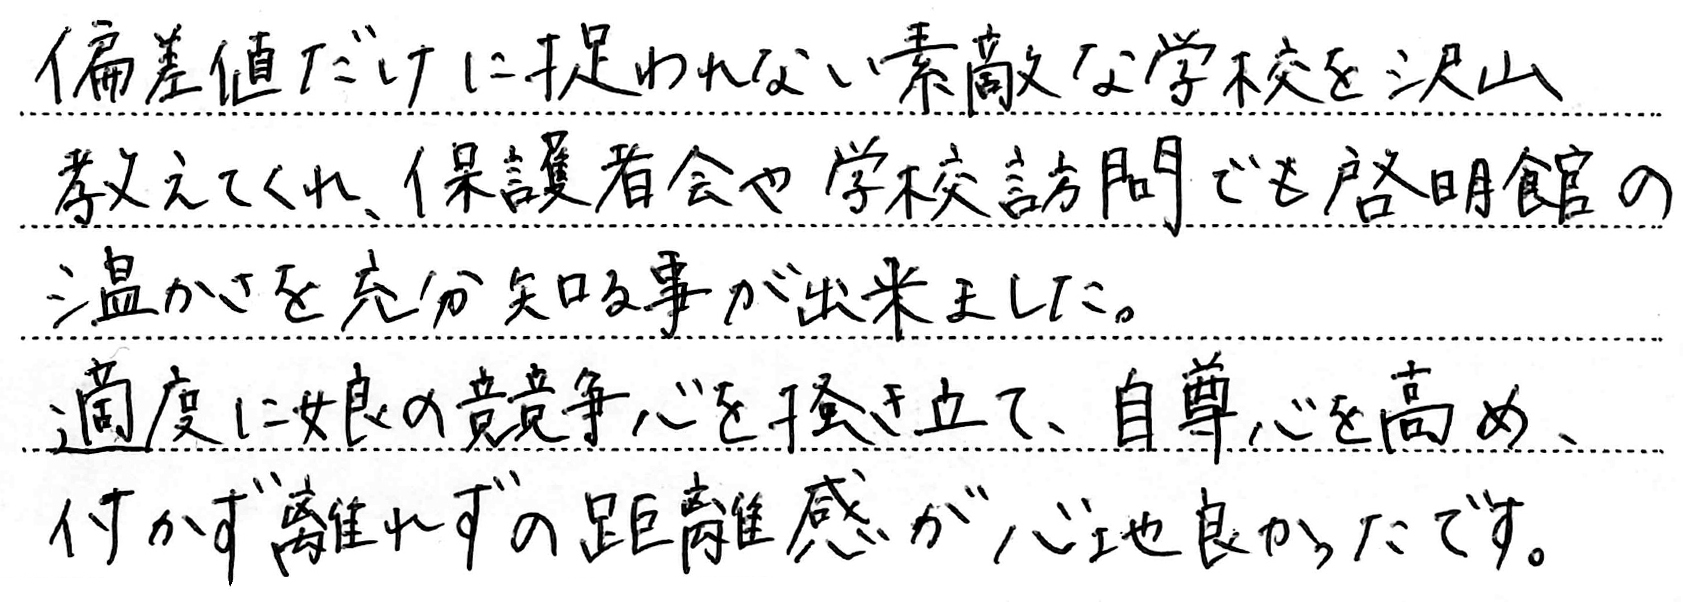 偏差値だけに捉われない素敵な学校を沢山
教えてくれ、保護者会や学校訪問でも啓明館の
温かさを充分知る事が出来ました。
適度に娘の競争心を掻き立て、自尊心を高め、
付かず離れずの距離感が心地良かったです。